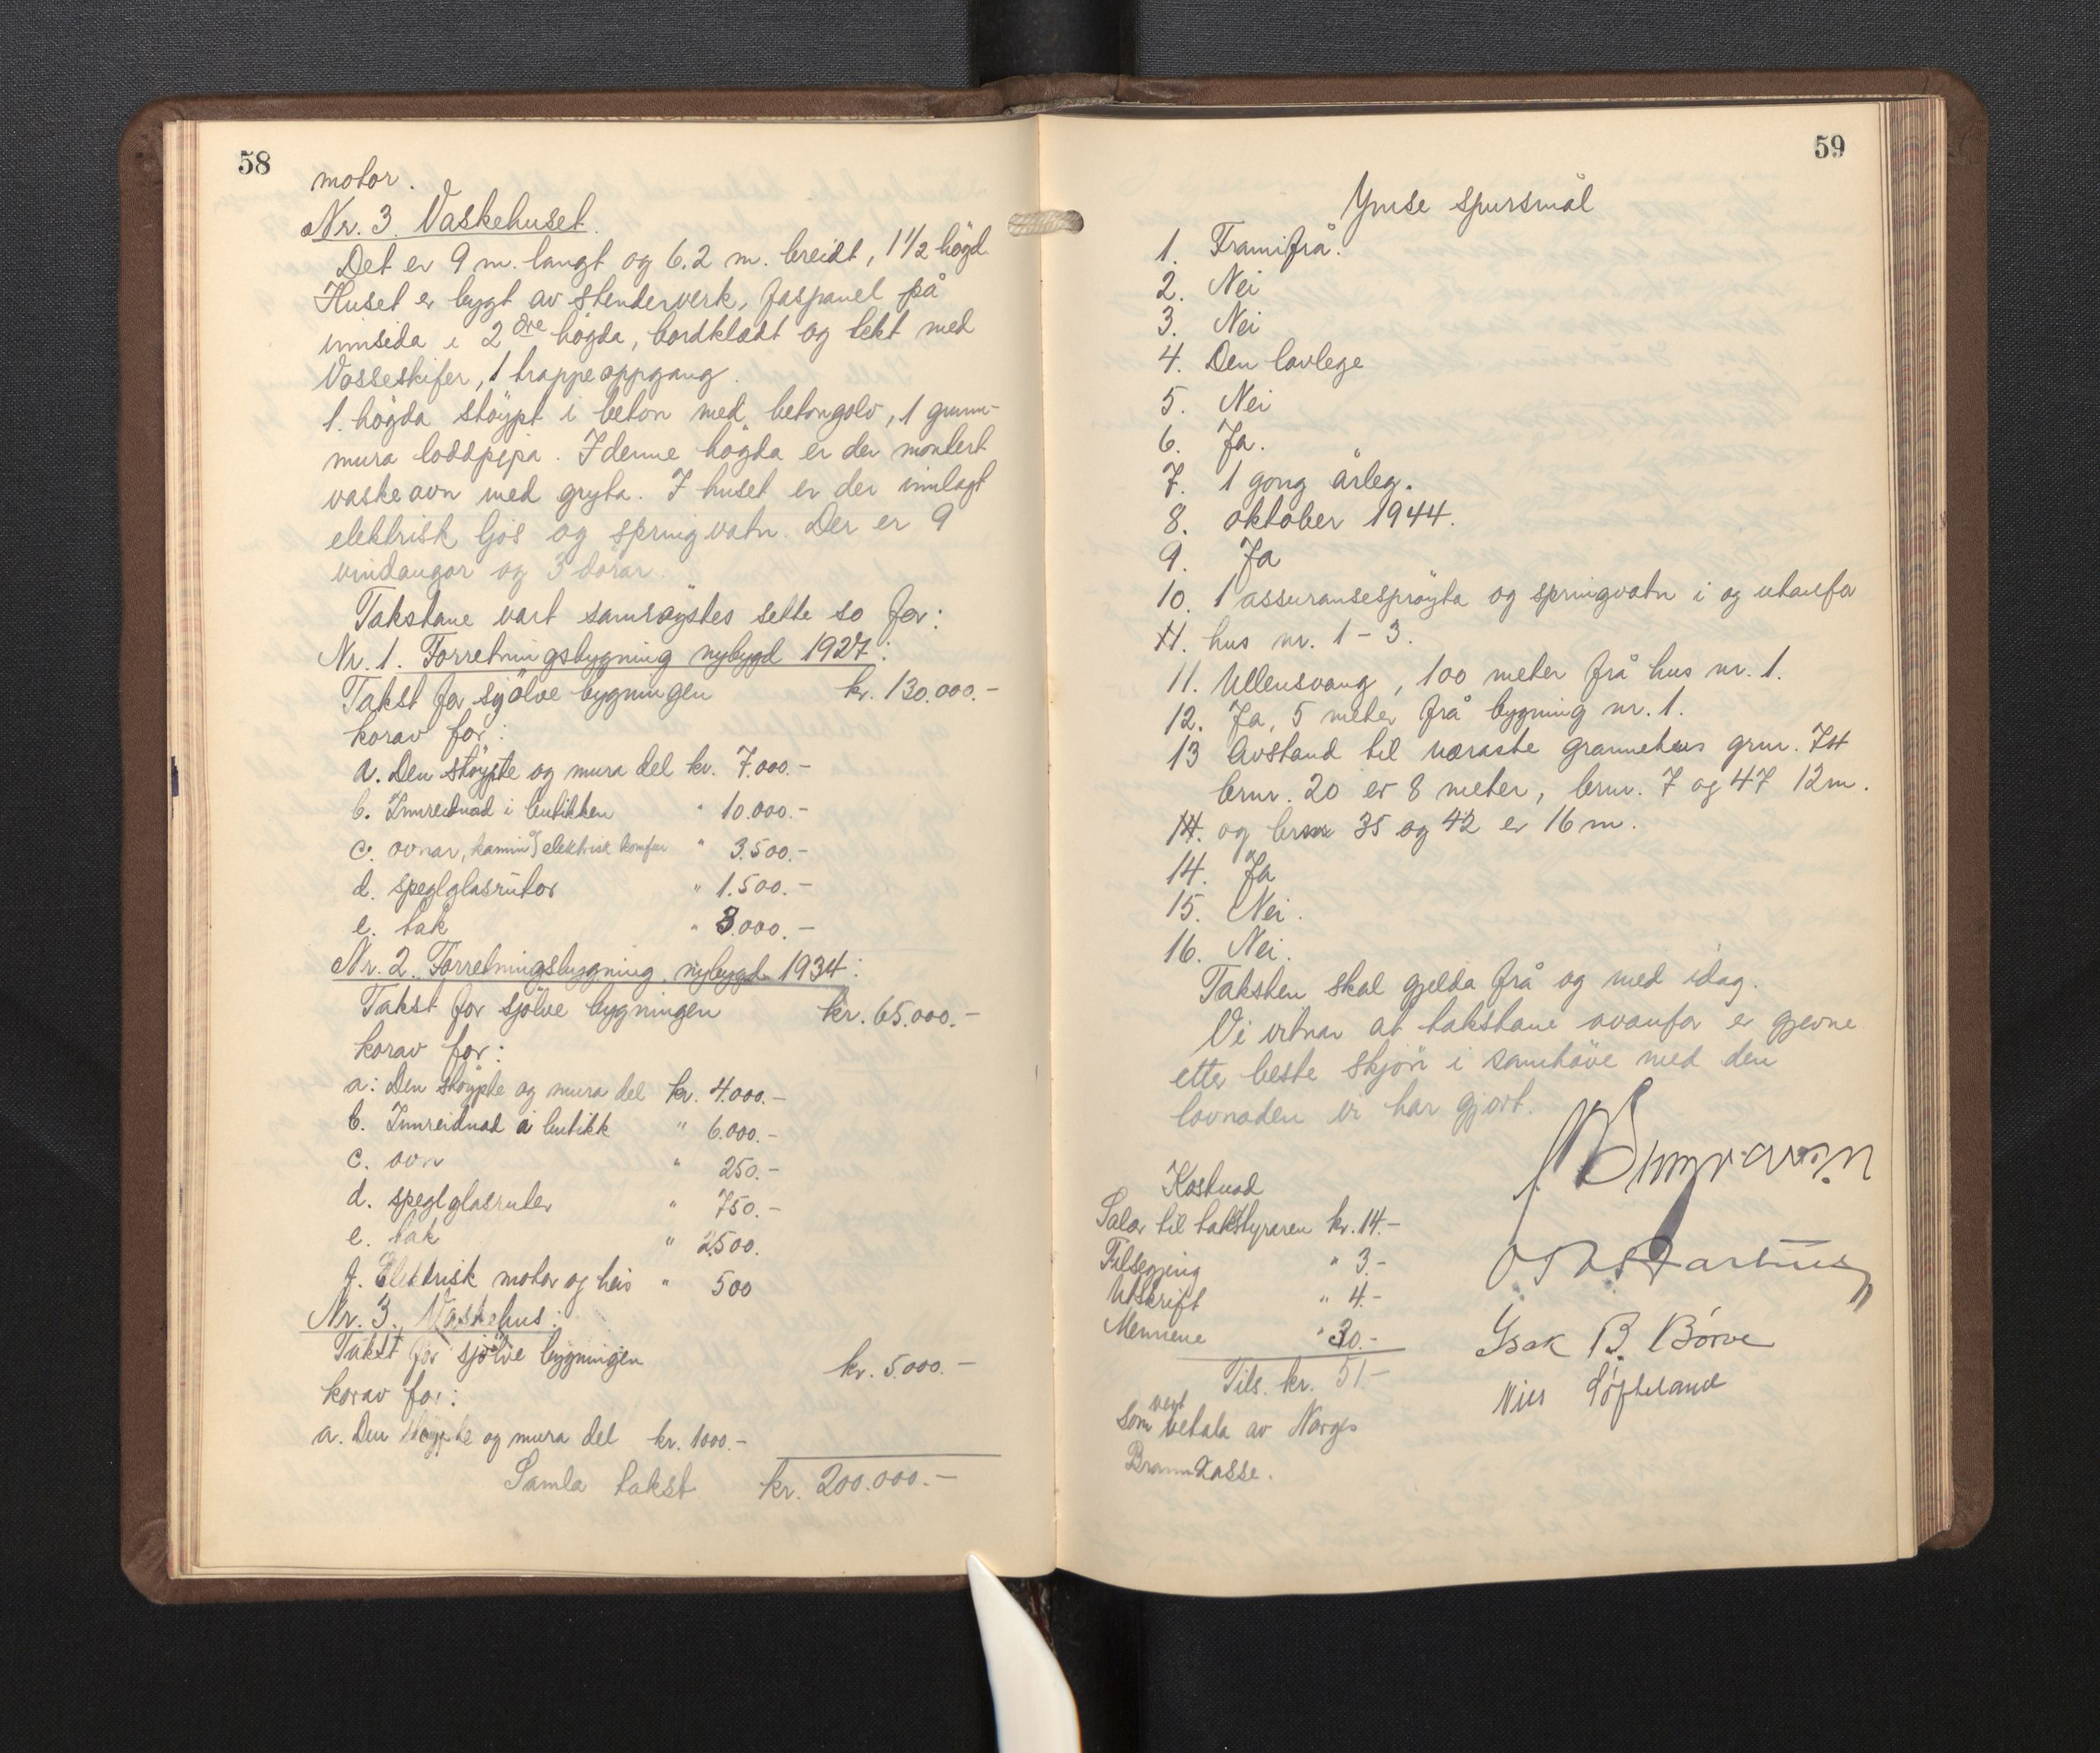 58
motor.
Nr. 3. Vaskehuset.
Det er 9 m. langt og 6.2 m. breidt, 1 1/2 högd.
Huset er bygt av stenderverk, faspanel på
innsida i 2 dre högda, bordklædt og tekt med
Vosseskifer, 1 trappeoppgang.
1. högda stöypt i beton med betongolv, 1 grunn-
mura loddpipa. I denne högda er der montert
vaskeovn med gryta. I huset er der innlagt
elektrisk ljos og springvatn. Der er 9
vindaugor og 3 dörar.
Takstane vart samröystes sette so for:
Nr. 1. Forretningsbygning nybygd 1927:
Takst for sjölve bygningen kr. 130.000.-
korav for:
a. Den stöypte og mura del kr. 7.000.-
b. Innreidnad i butikken " 10.000.-
c. ovnar, kamin og elektrisk komfur " 3.500.-
d. speglglasrutor " 1.500.-
e. tak " 3.000.-
Nr. 2. Forretningsbygning, nybygd 1934:
Takst for sjölve bygningen kr. 65.000.-
korav for:
a: Den stöypte og mura del kr. 4.000.-
b. Innreidnad i butikk " 6.000.-
c. ovn " 250.-
d. speglglasruter " 750.-
e. tak " 2500.
f. Elektrisk motor og heis " 500
Nr. 3. Vaskehus:
Takst for sjölve bygningen kr. 5.000.-
korav for:
a. Den stöypte og mura del kr. 1000.-
Samla takst kr. 200.000.-
59
Ymse spursmål
1. Framifrå.
2. Nei
3. Nei
4. Den lovlege
5. Nei
6. Ja.
7. 1 gong årleg.
8. oktober 1944.
9. Ja
10. 1 assuransespröyta og springvatn i og utanfor
11. hus nr. 1 - 3.
11. Ullensvang, 100 meter frå hus nr. 1.
12. Ja, 5 meter frå bygning nr. 1.
13 Avstand til næraste grannehus grnr. 74
brnr. 20 er 8 meter, brnr. 7 og 47 12 m.
14. og brnr 35 og 42 er 16 m.
14. Ja
15. Nei.
16. Nei.
Taksten skal gjelda frå og med idag.
Vi vitnar at takstane ovanfor er gjevne
etter beste skjön i samhöve med den
lovnaden vi har gjort.
Kostnad
Salar til takstyraren kr. 14.-
Tilsegjing " 3.-
Utskrift " 4.-
Mennene " 30.-
Tils. kr. 51.-
Som vert betala av Norges
Brannkasse.
Isak B. Börve
Nils Löfteland